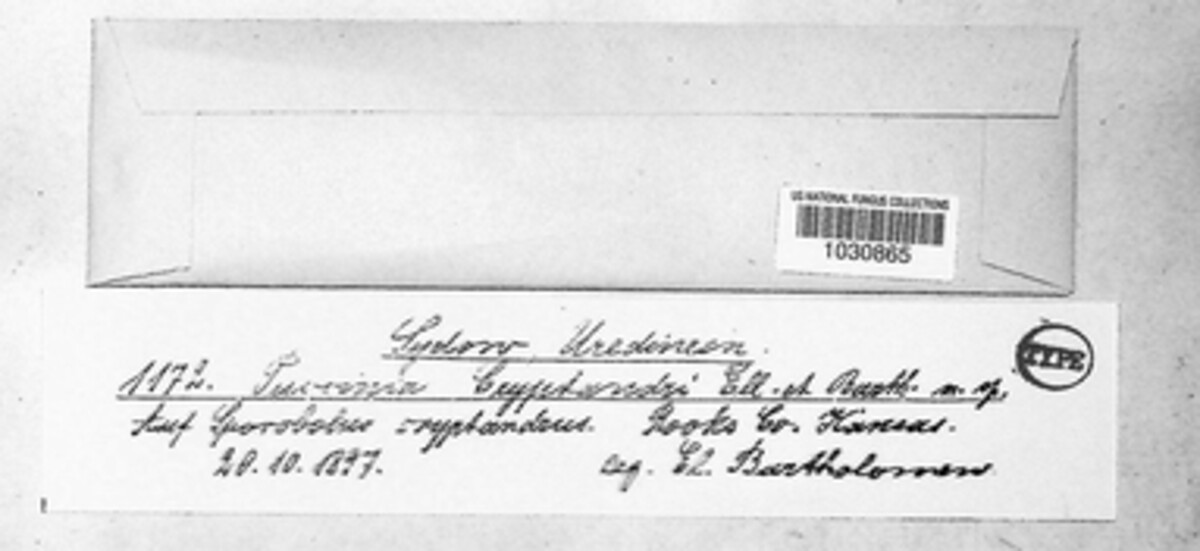 US NATIONAL FUNGUS COLLECTIONS
1030865
Sydow, Uredineen.
TYPE
1172. Puccinia Cryptandri Ell. et Barth. n. sp.
Auf Sporobolus cryptandrus. Rooks Co. Kansas.
20.10.1897. leg. El. Bartholomew